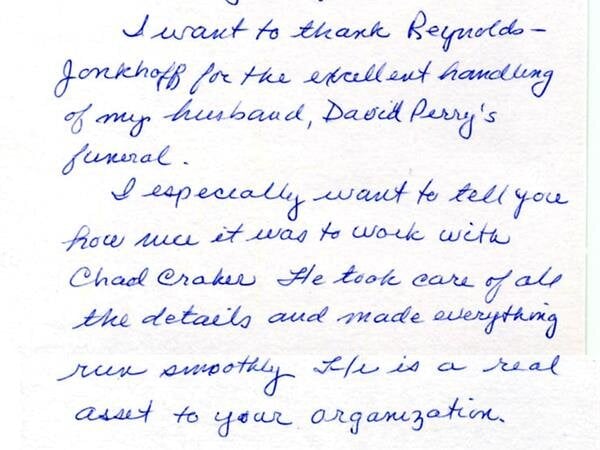 I want to thank Reynolds-
Jonkhoff for the excellent handling
of my husband, David Perry's
funeral.
I especially want to tell you
how nice it was to work with
Chad Craker He took care of all
the details and made everything
run smoothly He is a real
asset to your organization.